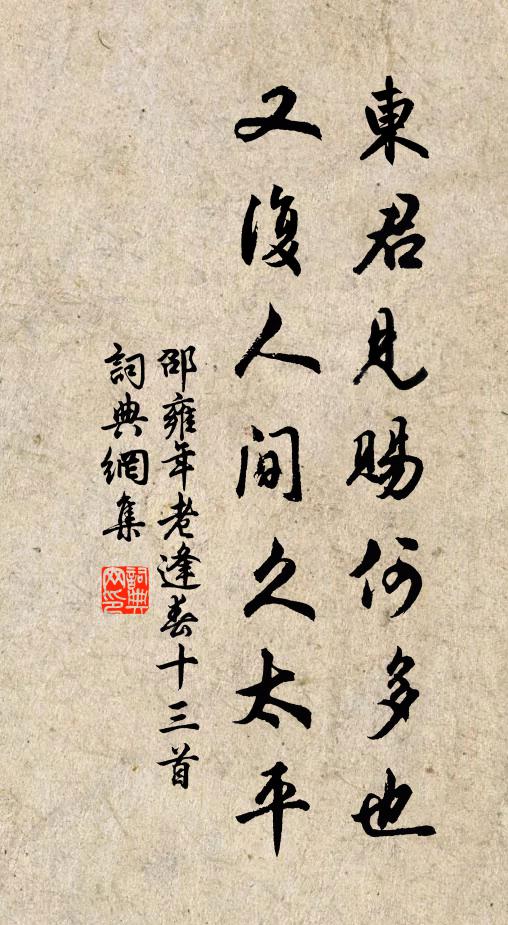 東君見賜何多也
又復人間久太平
邵雍年老逢春十三首
詞典網集
詞典網印